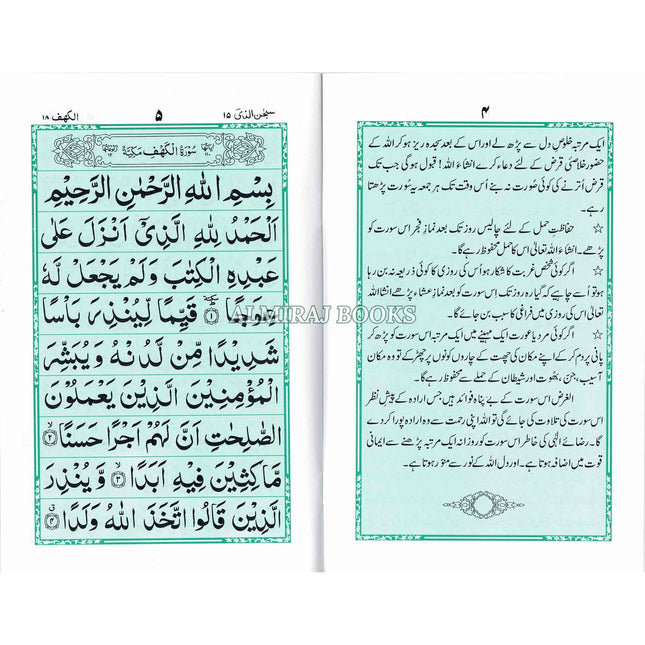 ۴
ایک مرتبہ خلوص دل سے پڑھ لے اور اس کے بعد سجدہ ریز ہو کر اللہ کے
حضور خلاصئی قرض کے لئے دعاء کرے انشاءَ اللہ! قبول ہوگی جب تک
قرض اُترنے کی کوئی صورت نہ بنے اُس وقت تک ہر جمعہ یہ سُورت پڑھتا
رہے۔
☆ حفاظتِ حمل کے لئے چالیس روز تک بعد نمازِ فجر اس سورت کو
پڑھے۔ انشاءَ اللہ تعالیٰ اس کا حمل محفوظ رہے گا۔
☆ اگر کوئی شخص غربت کا شکار ہو اُس کی روزی کا کوئی ذریعہ نہ بن رہا
ہو تو اُسے چاہیے کہ گیارہ روز تک اِس سورت کو بعد نمازِ عشاء پڑھے انشا اللہ
تعالیٰ اس کی روزی میں فراخی کا سبب بن جائے گا۔
☆ اگر کوئی مرد یا عورت ایک مہینے میں ایک مرتبہ اس سورت کو پڑھ کر
پانی پر دم کر کے اپنے مکان کی چھت کے چاروں کونوں پر چھڑکے تو وہ مکان
آسیب، جن، بھوت اور شیطان کے حملے سے محفوظ رہے گا۔
الغرض اس سورت کے بے پناہ فوائد ہیں جس ارادہ کے پیش نظر
اس سورت کی تلاوت کی جائے گی تو اللہ اپنی رحمت سے وہ ارادہ پورا کردے
گا۔ رضائے الٰہی کی خاطر اس سورت کو روزانہ ایک مرتبہ پڑھنے سے ایمانی
قوت میں اضافہ ہوتا ہے۔ اور دل اللہ کے نُور سے منوّر ہوتا ہے۔
سبحٰن الذیٓ ۱۵
۵
الکھف ۱۸
سُوْرَةُ الْكَهْفِ مَكِّيَّةٌ
بِسْمِ اللّٰهِ الرَّحْمٰنِ الرَّحِيْمِ
اَلْحَمْدُ لِلّٰهِ الَّذِيْٓ اَنْزَلَ عَلٰى
عَبْدِهِ الْكِتٰبَ وَلَمْ يَجْعَلْ لَّهٗ
عِوَجًا ۜ ۱ قَيِّمًا لِّيُنْذِرَ بَاْسًا
شَدِيْدًا مِّنْ لَّدُنْهُ وَيُبَشِّرَ
الْمُؤْمِنِيْنَ الَّذِيْنَ يَعْمَلُوْنَ
الصّٰلِحٰتِ اَنَّ لَهُمْ اَجْرًا حَسَنًا ۙ ۲
مَّاكِثِيْنَ فِيْهِ اَبَدًا ۙ ۳ وَّيُنْذِرَ
الَّذِيْنَ قَالُوا اتَّخَذَ اللّٰهُ وَلَدًا ۤ ۴
ALMIRAJ BOOKS